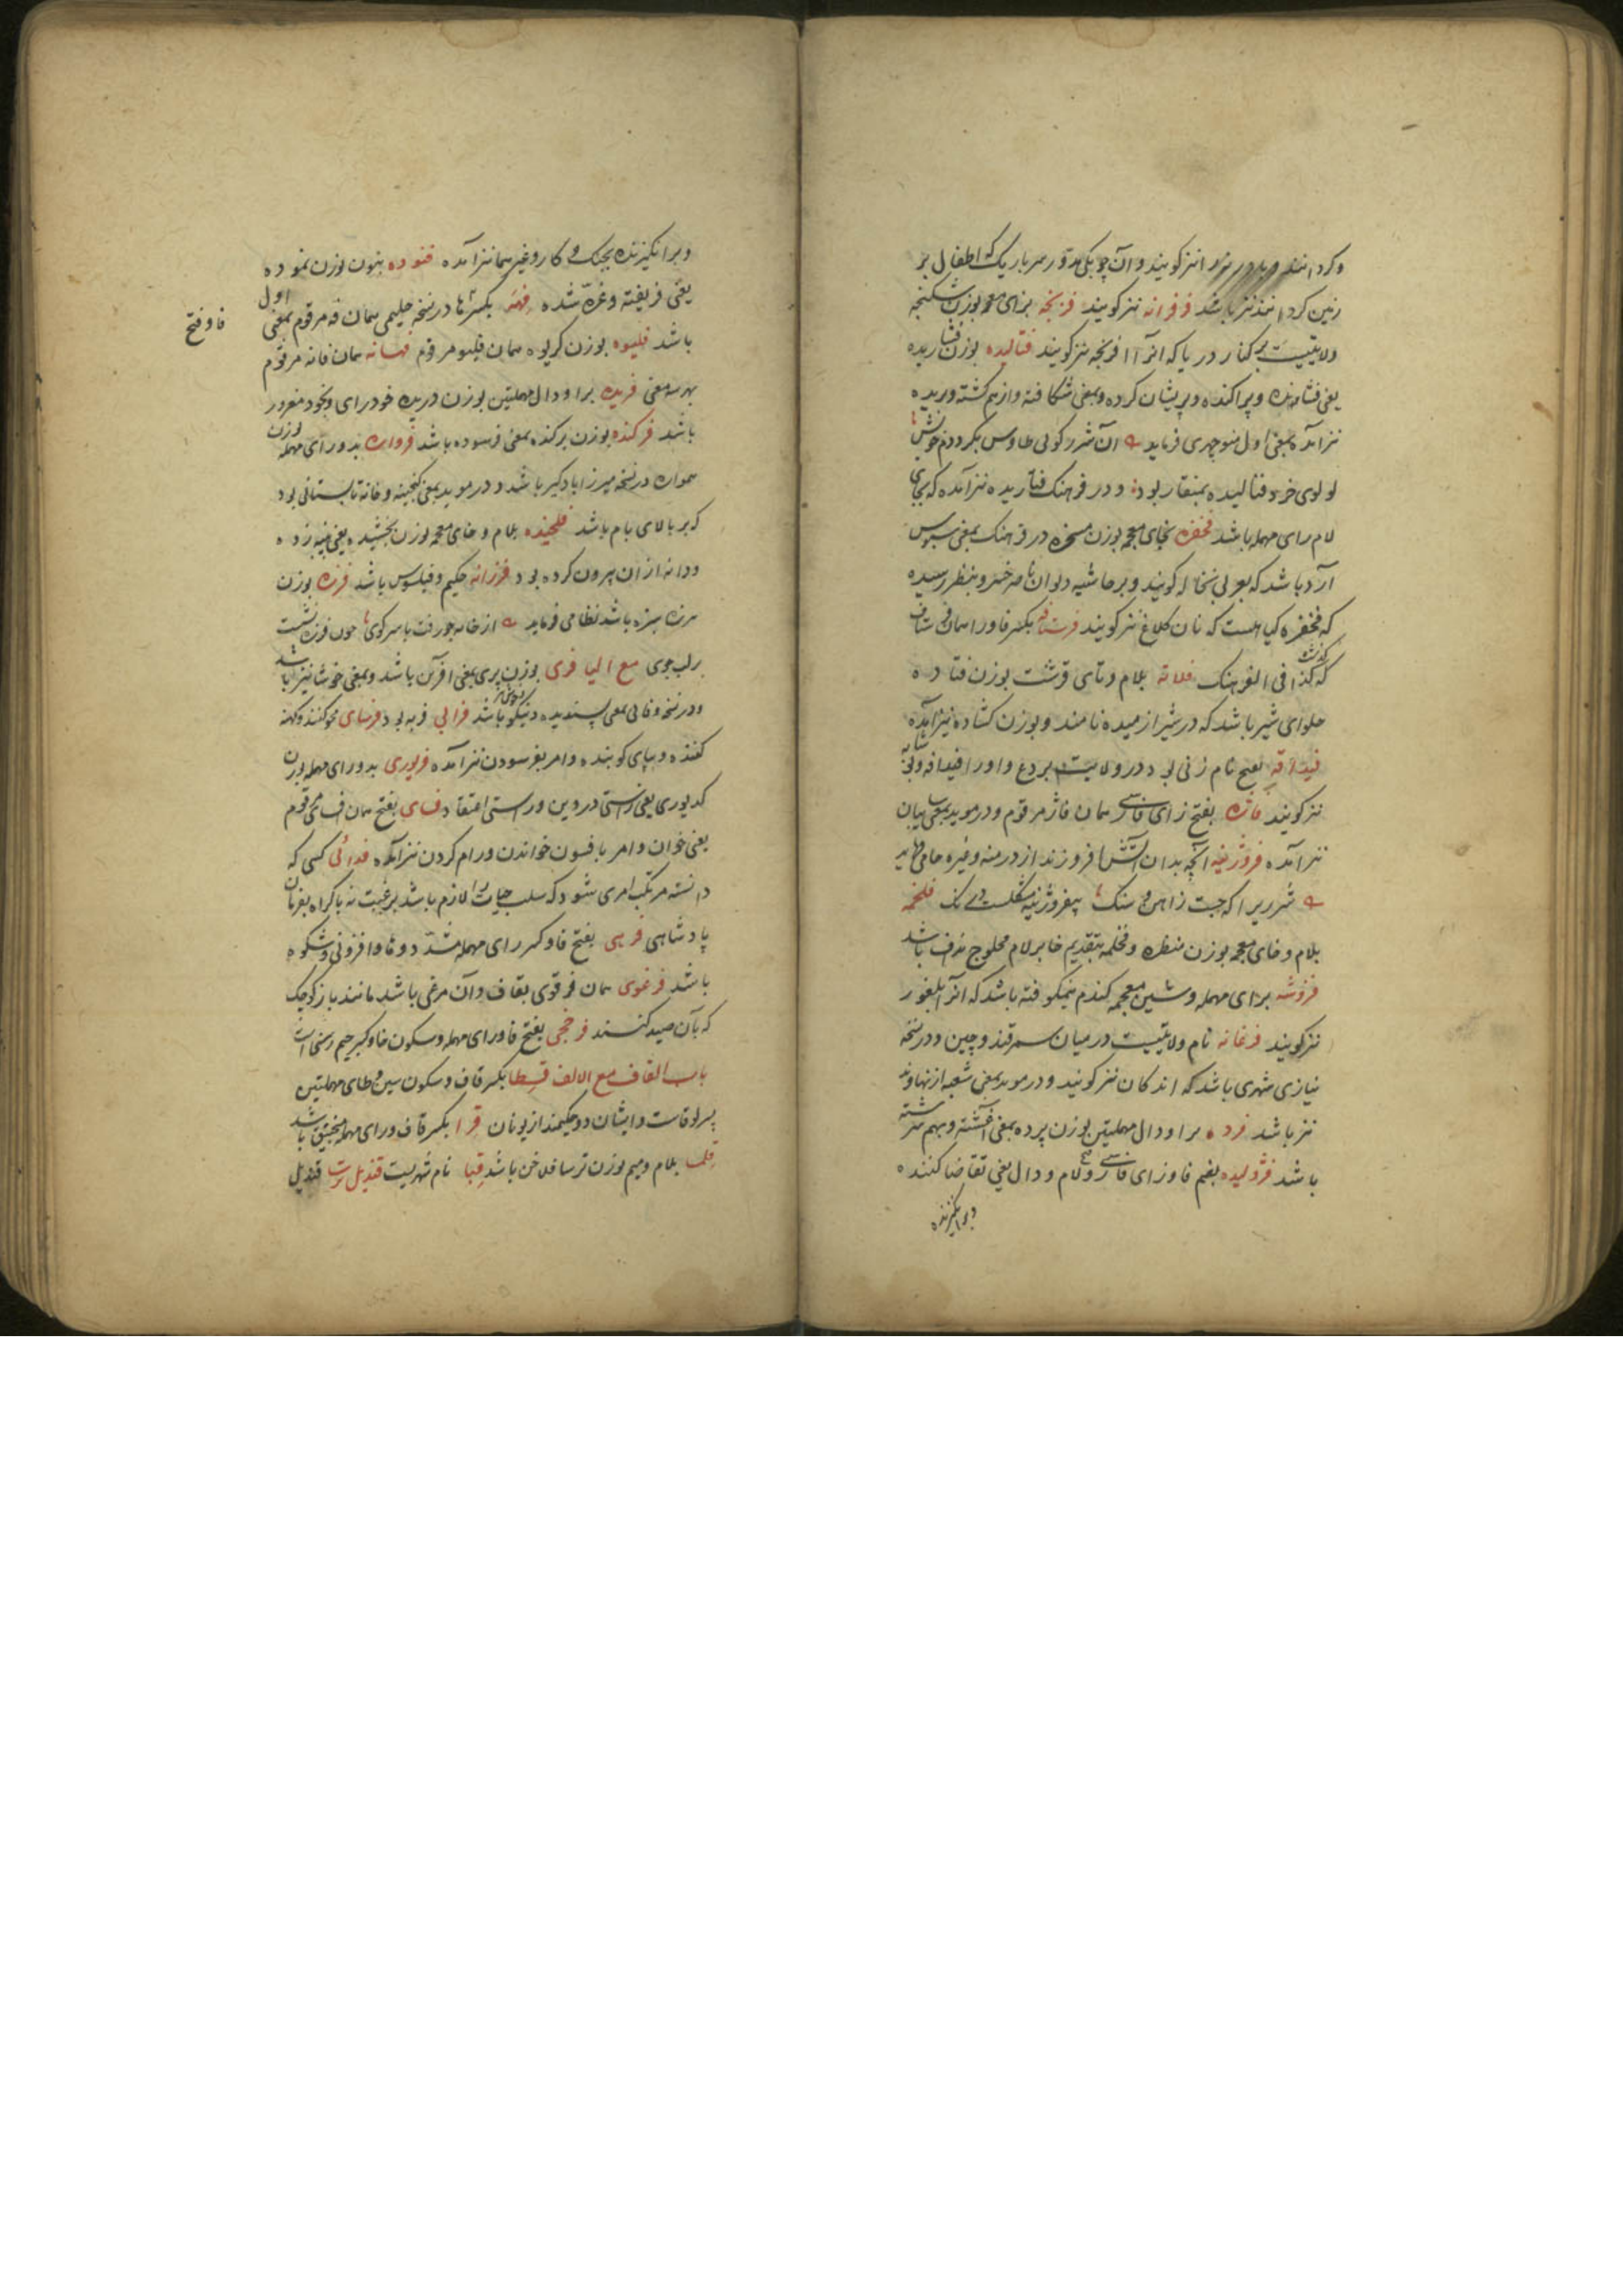 و کردانند نیز کویند و آن چوبکی مدوّر سر باریک که اطفال بر
زمین کردانند نیز باشد فرفرانه نیز کویند فرنجه بزای معجمه بوزن شکنجه
ولایتیست بر کنار دریا که آنرا افرنجه نیز کویند فتالیده بوزن فتاریده
یعنی فشانده و پراکنده و پریشان کرده و بمعنی شکافته و از هم کشته و دریده
نیز آمده بمعنی اول منوچهری فرماید آن شرر کوئی طاوس بکرد دم خویش
لولوی خرد فتالیده بمنقار بود و در فرهنک فتاریده نیز آمده که بجای
لام رای مهمله باشد فخفره بخای معجمه بوزن مسخره در فرهنک بمعنی سبوس
آرد باشد که بعربی نخاله کویند و بر حاشیه دیوان ناصر خسرو بنظر رسیده
که فخفره کیاهست که نان کلاغ نیز کویند فرستافه بکسر فا و را همان فرستاف
که کذشت کذا فی الفرهنک فلاته بلام و تای قرشت بوزن فتاده
حلوای شیر باشد که در شیراز میده نامند و بوزن کشاده نیز آمده
فیدافه بفتح نام زنی بود در ولایت بردع و او را قیدافه و نوشابه
نیز کویند فاژه بفتح زای فارسی همان فاژ مرقوم و در موید بمعنی بیان
نیز آمده فروزینه آنچه بدان آتش افروزند از درمنه و غیره جامی فرماید
شرر را که جست ز آهن و سنک بیفروزینه مشکلست درنک فلخمه
بلام و خای معجمه بوزن منظره و فخلمه بتقدیم خا بر لام محلوج نداف باشد
فروشه برای مهمله و شین معجمه کندم نیمکوفته باشد که آنرا بلغور
نیز کویند فرغانه نام ولایتیست در میان سمرقند و چین و در نسخه
نیازی شهری باشد که اندکان نیز کویند و در موید بمعنی شعبه از نهاوند
نیز باشد فرده برا و دال مهملتین بوزن پرده بمعنی آغشته و بهم سرشته
باشد فژولیده بضم فا و زای فارسی و فتح لام و دال یعنی تقاضا کننده
و برانکیزنده
و برانکیزنده بجنک و کار و غیر هما نیز آمده فنوده بنون بوزن نموده
یعنی فریفته و غرّه شده فهنه بکسر ها در نسخه حلیمی همان فه مرقوم بمعنی اول
فا و فتح
باشد فلیوه بوزن کریوه همان فلیو مرقوم فهانه همان فانه مرقوم
بهر سه معنی فریده برا و دال مهملتین بوزن دریده خودرای و بخود مغرور
باشد فرکنده بوزن برکنده بمعنی فرسوده باشد فرواره بدو رای مهمله بوزن
همواره در نسخه میرزا بادکیر باشد و در موید بمعنی کنجینه و خانه تابستانی بود
که بر بالای بام باشد فلخیده بلام و خای معجمه بوزن بخشیده یعنی پنبه زده
و دانه از آن بیرون کرده بود فرزانه حکیم و فیلسوف باشد فرزه بوزن
هرزه سبزه باشد نظامی فرماید از خانه چو رفت با سر کوی چون فرزه نشست
بر لب جوی مع الیا فری بوزن پری بمعنی آفرین باشد و بمعنی خوشا نیز باشد
و در نسخه وفائی بمعنی پسندیده و نیکو باشد فرابی فربه بود فرسای محو کننده و کهنه
کننده و بپای کوبنده و امر بفرسودن نیز آمده فریوری بدو رای مهمله بوزن
کدیوری یعنی راستی در دین و راستی اعتقاد فسای بفتح همان افسای مرقوم
یعنی خوان و امر بافسون خواندن و رام کردن نیز آمده فدائی کسی که
دانسته مرتکب امری شود که سلب حیات را لازم باشد برغبت نه باکراه بفرمان
پادشاهی فرهی بفتح فا و کسر رای مهمله مشدّد و ها وافزونی و شکوه
باشد فرغوی همان فرقوی بقاف و آن مرغی باشد مانند باز کوچک
که بآن صید کنند فرخجی بفتح فا و رای مهمله و سکون خا و کسر جیم زشتی است
باب القاف مع الالف قسطا بکسر قاف و سکون سین و طای مهملتین
پسر لوقاست و ایشان دو حکیمند از یونان قرا بکسر قاف و رای مهمله منجنیق باشد
قلما بلام و میم بوزن ترسا فلاخن باشد قبا نام شهریست قندیل ترسا قندیل